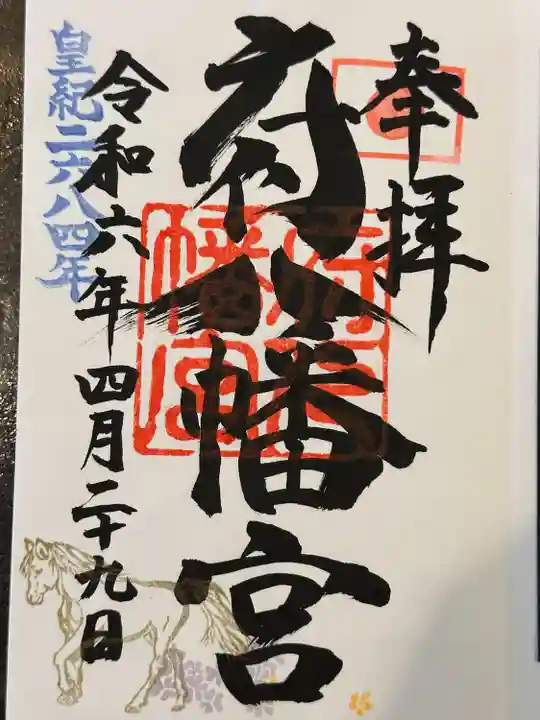 奉拝
府八幡宮
府八幡宮
令和六年四月二十九日
皇紀二六八四年